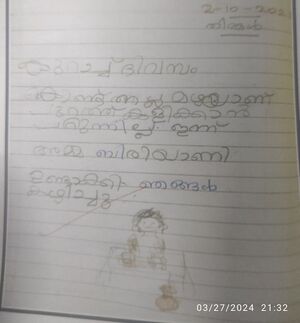 2-10-202
തിങ്കൾ
കുറച്ച് ദിവസം
കൊണ്ട് നല്ല മഴയാണ്
പുറത്ത് കളിക്കാൻ
പറ്റുന്നില്ല ഇന്ന്
അമ്മ ബിരിയാണി
ഉണ്ടാക്കി ഞങ്ങൾ
കഴിച്ചു
03/27/2024 21:32